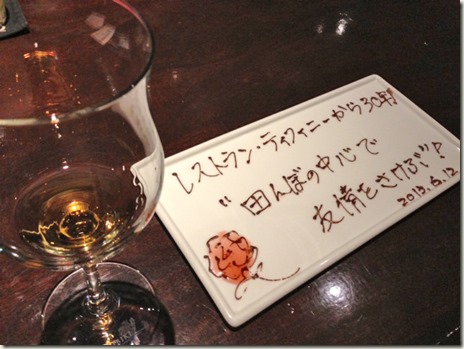 レストラン・ティファニーから30年
〝田んぼの中心で
友情をさけぶ〞!
2013.6.12